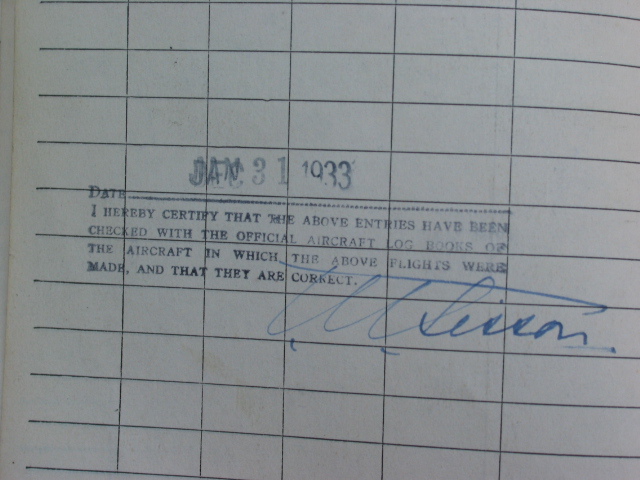 DATE JAN 31 1933
I HEREBY CERTIFY THAT THE ABOVE ENTRIES HAVE BEEN
CHECKED WITH THE OFFICIAL AIRCRAFT LOG BOOKS OF
THE AIRCRAFT IN WHICH THE ABOVE FLIGHTS WERE
MADE, AND THAT THEY ARE CORRECT.